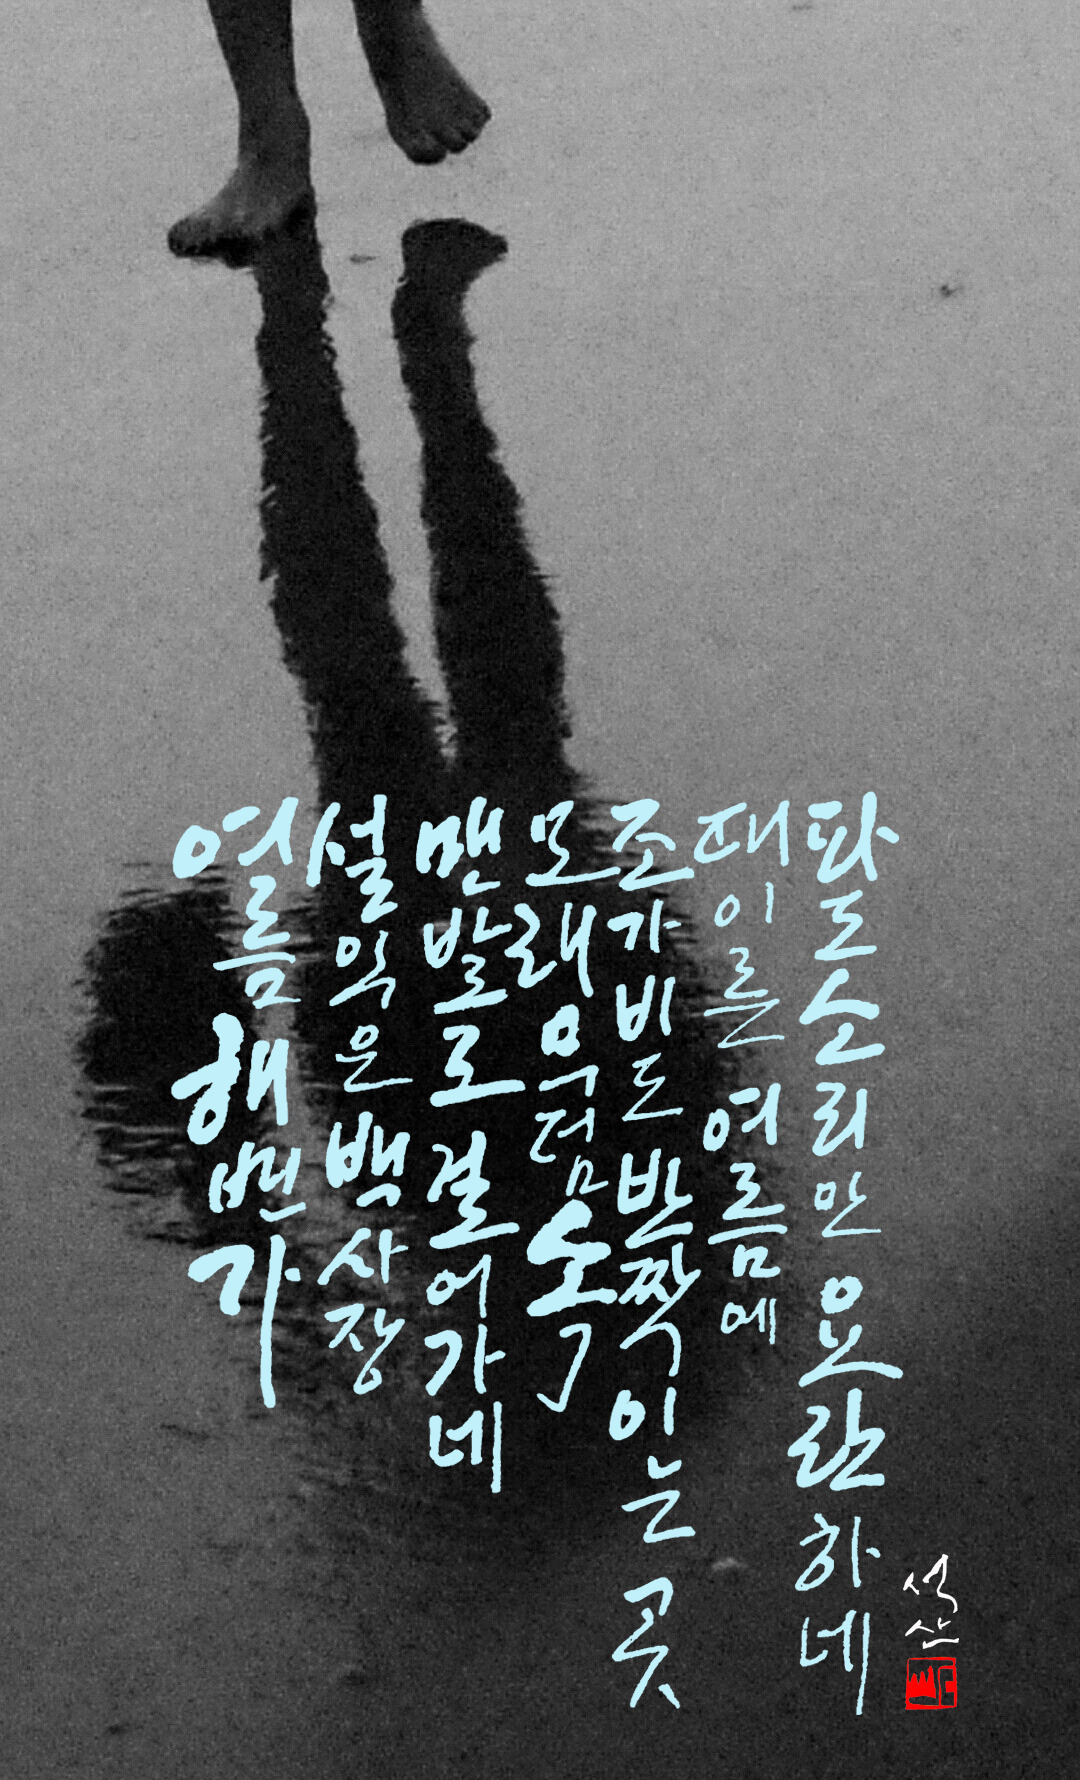 여름 해변가
설익은 백사장
맨발로 걸어가네
모래 무덤 속
조가비도 반짝이는 곳
때이른 여름에
파도소리만 요란하네
석산